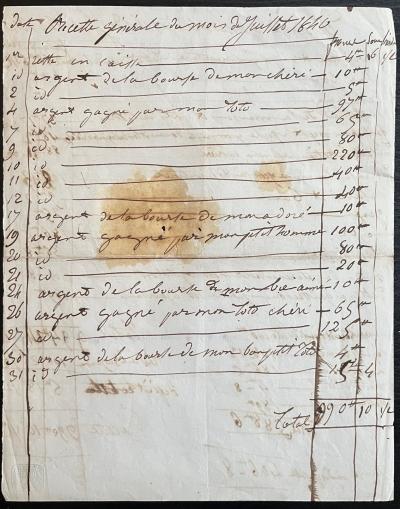 date Recette générale du mois de Juillet 1846
francs sous
1er reste en caisse 4 6 1/2
id argent de la bourse de mon chéri 10
2 id 5
4 argent gagné par mon toto 95
7 id 65
9 id 80
10 id 220
11 id 40
12 id 40
17 argent de la bourse de mon adoré 10
19 argent gagné par mon petit homme 100
20 id 80
21 id 20
24 argent de la bourse de mon bien aimé 10
26 argent gagné par mon toto chéri 65
27 id 125
30 argent de la bourse de mon bon petit toto 4
31 id 4
Total 990 10 1/2